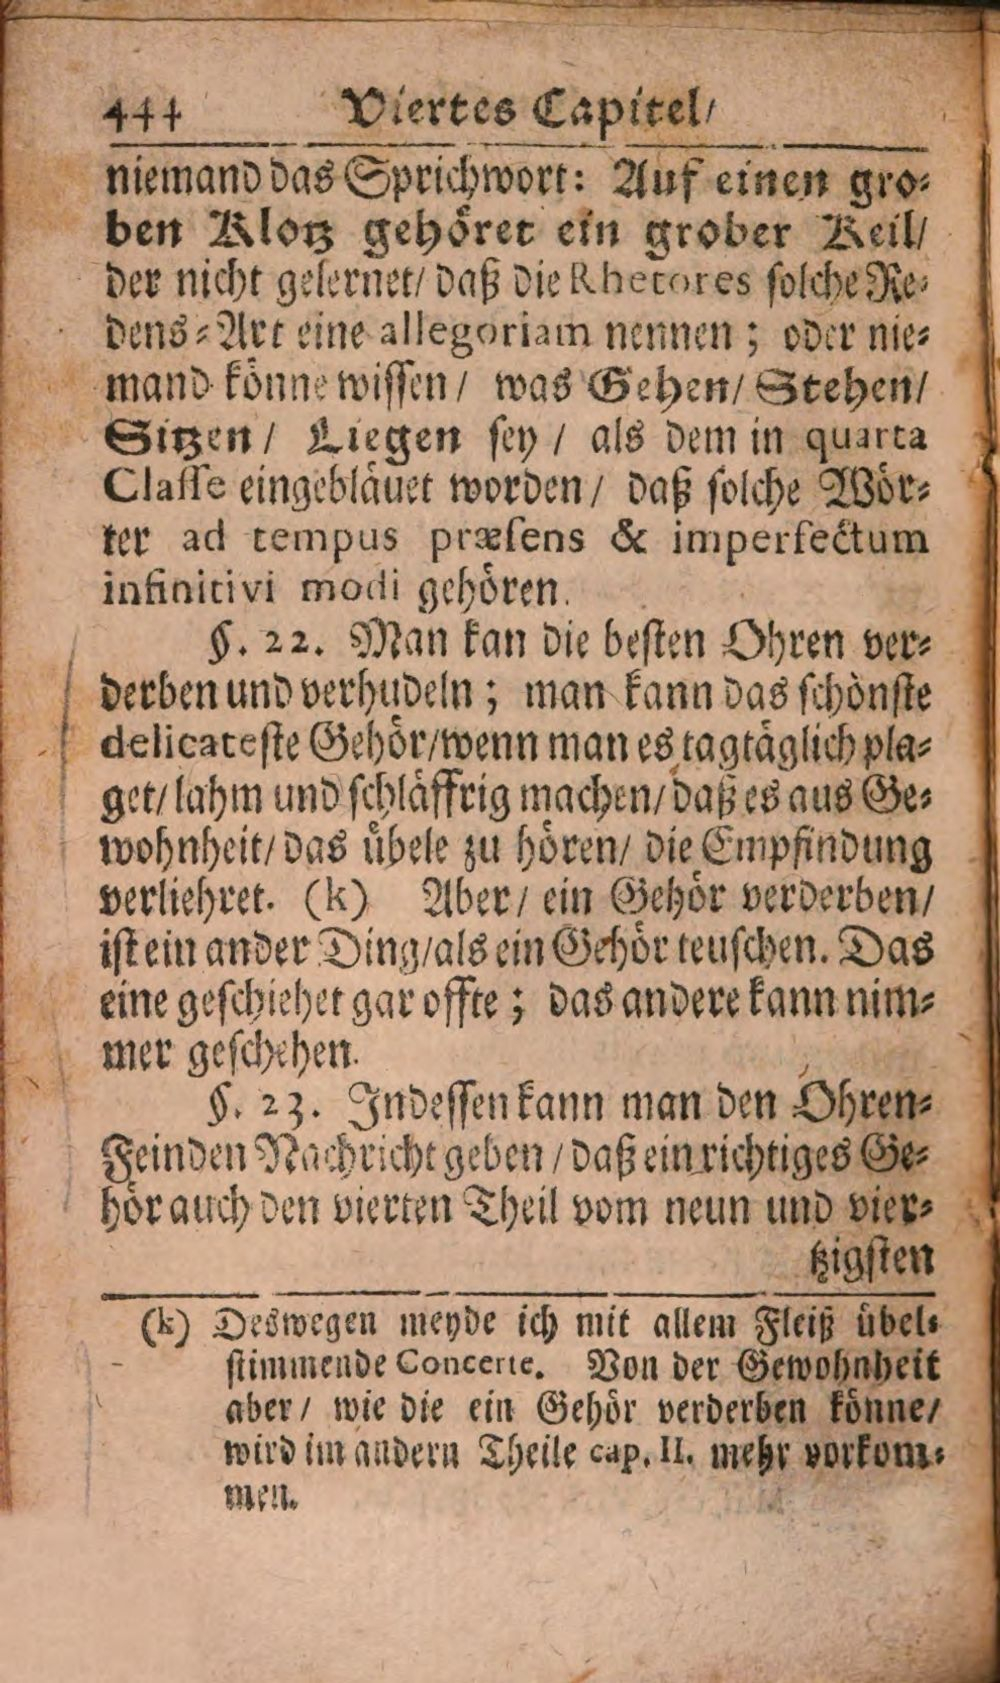 444 Viertes Capitel/
niemand das Sprichwort: Auf einen gro-
ben Klotz gehöret ein grober Keil/
der nicht gelernet/ daß die Rhetores solche Re-
dens-Art eine allegoriam nennen; oder nie-
mand könne wissen/ was Gehen/ Stehen/
Sitzen/ Liegen sey/ als dem in quarta
Classe eingebläuet worden/ daß solche Wör-
ter ad tempus præsens & imperfectum
infinitivi modi gehören.
§. 22. Man kan die besten Ohren ver-
derben und verhudeln; man kann das schönste
delicateste Gehör/wenn man es tagtäglich pla-
get/ lahm und schläffrig machen/ daß es aus Ge-
wohnheit/ das übele zu hören/ die Empfindung
verliehret. (k) Aber/ ein Gehör verderben/
ist ein ander Ding/als ein Gehör teuschen. Das
eine geschiehet gar offte; das andere kann nim-
mer geschehen.
§. 23. Indessen kann man den Ohren-
Feinden Nachricht geben/ daß ein richtiges Ge-
hör auch den vierten Theil vom neun und vier-
tzigsten
(k) Deswegen meyde ich mit allem Fleiß übel-
stimmende Concerte. Von der Gewohnheit
aber/ wie die ein Gehör verderben könne/
wird im andern Theile cap. II. mehr vorkom-
men.